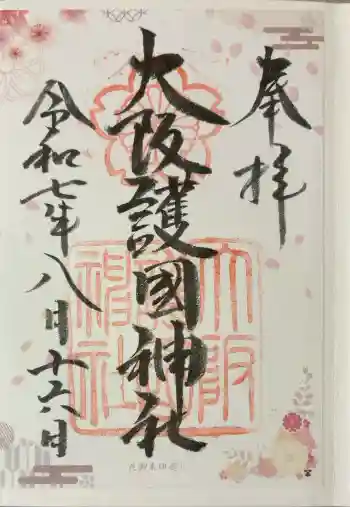 奉拝
大阪護國神社
令和七年八月十六日